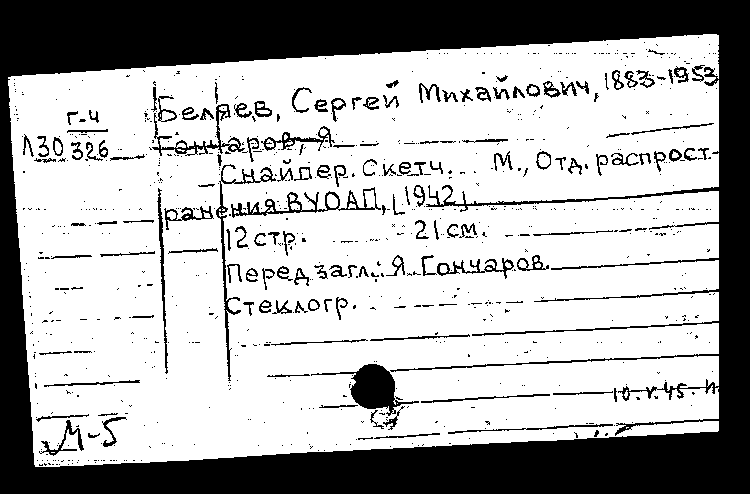 Г-4
Л30 326
Беляев, Сергей Михайлович, 1883-1953
Гончаров, Я
Снайпер. Скетч. М., Отд. распрост-
ранения ВУОАП, [1942].
12 стр. 21 см.
Перед загл.: Я. Гончаров.
Стеклогр.
10.V.45.
М-5